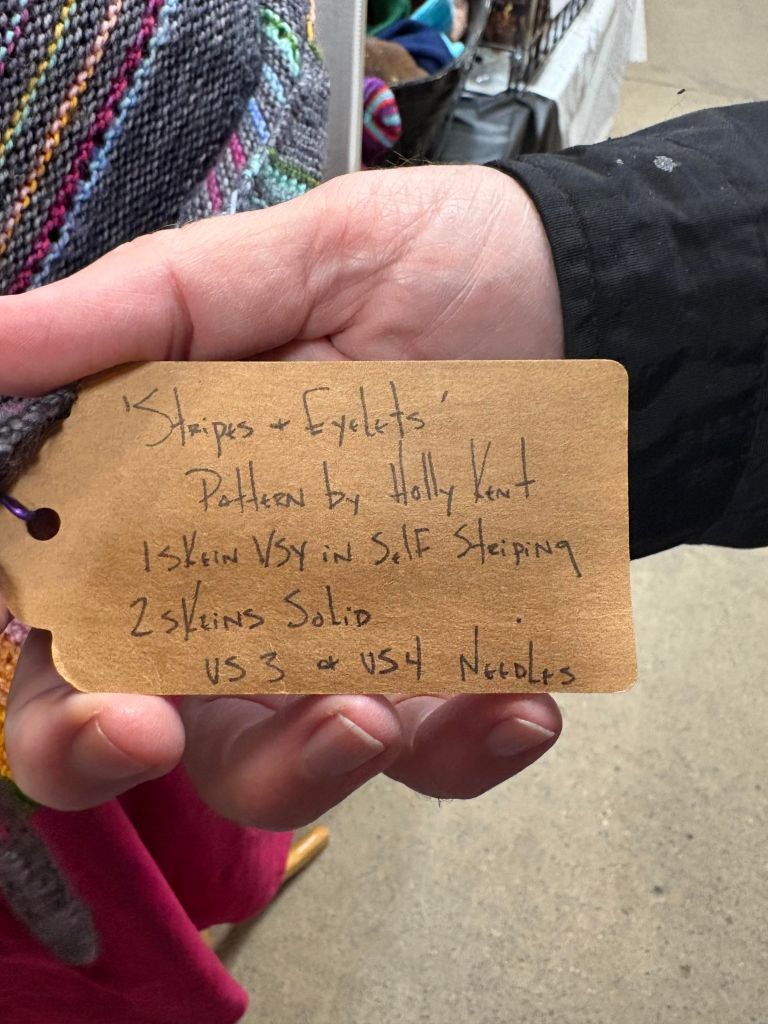 'Stripes + Eyelets'
Pattern by Holly Kent
1 skein VSY in Self Striping
2 skeins Solid
US 3 + US4 Needles